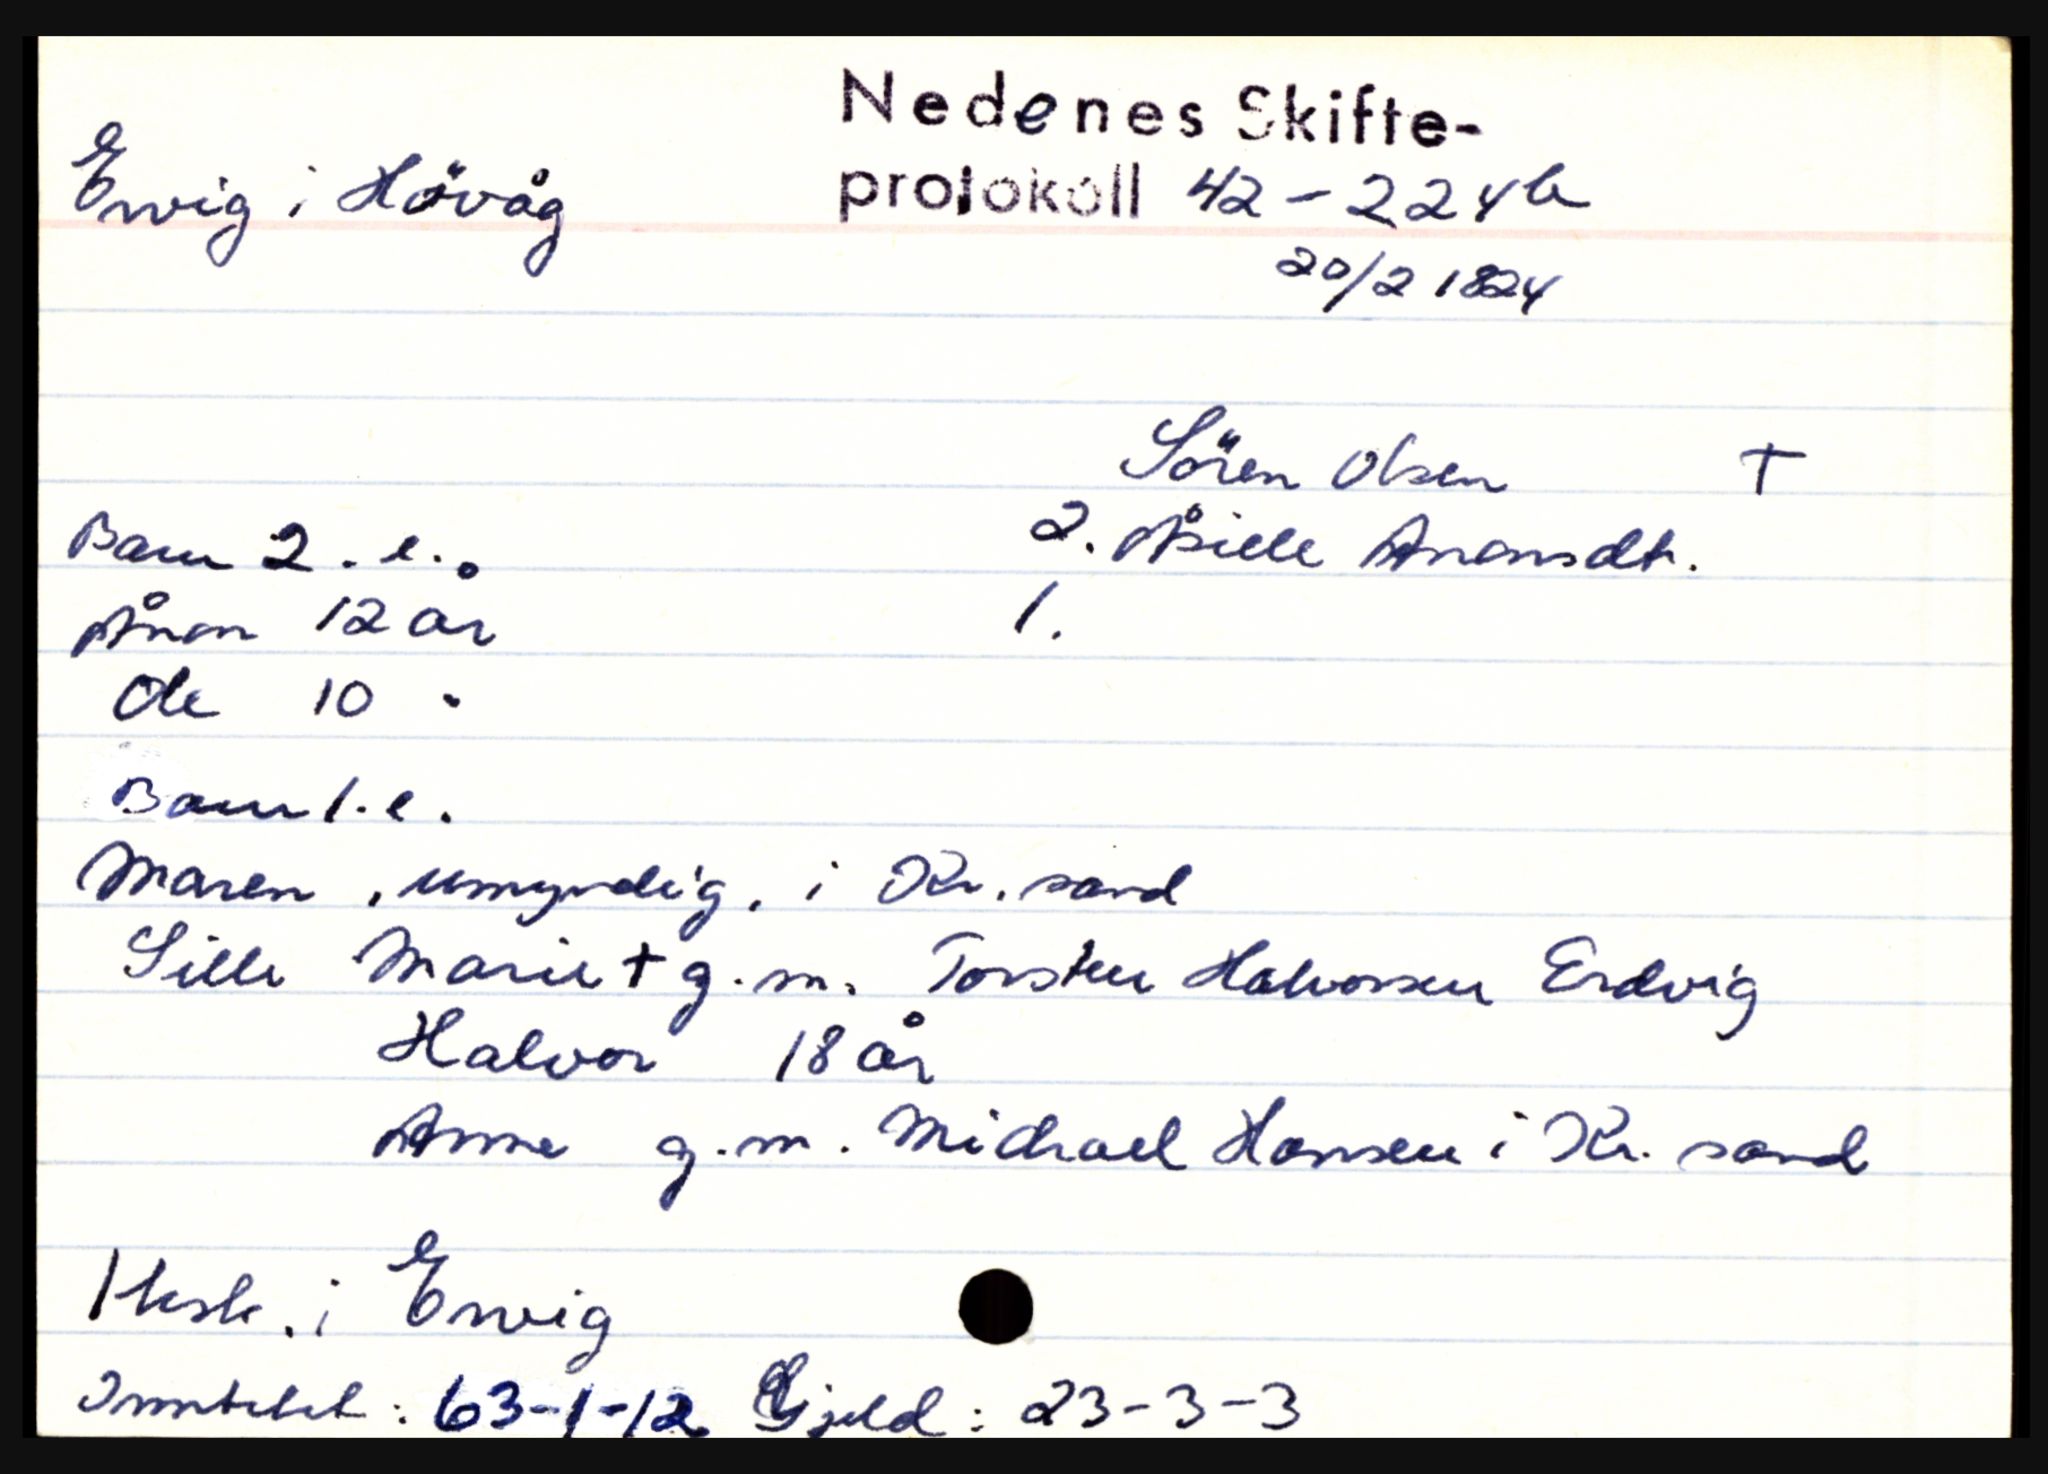 Nedenes Skifte-
Ervig i Hövåg
protokoll 42-224b
20/2 1824
Sören Olsen †
2. Åsille Anonsdt.
Barn 2. e.
1.
Ånon 12 år
Ole 10 "
Barn 1. e.
Maren, umyndig, i Kr.sand
Sille Marie † g.m. Torsten Halvorsen Erdvig
Halvor 18 år
Anne g.m. Michael Hansen i Kr.sand
i Ervig
Inntekt: 63-1-12 Gjeld: 23-3-3